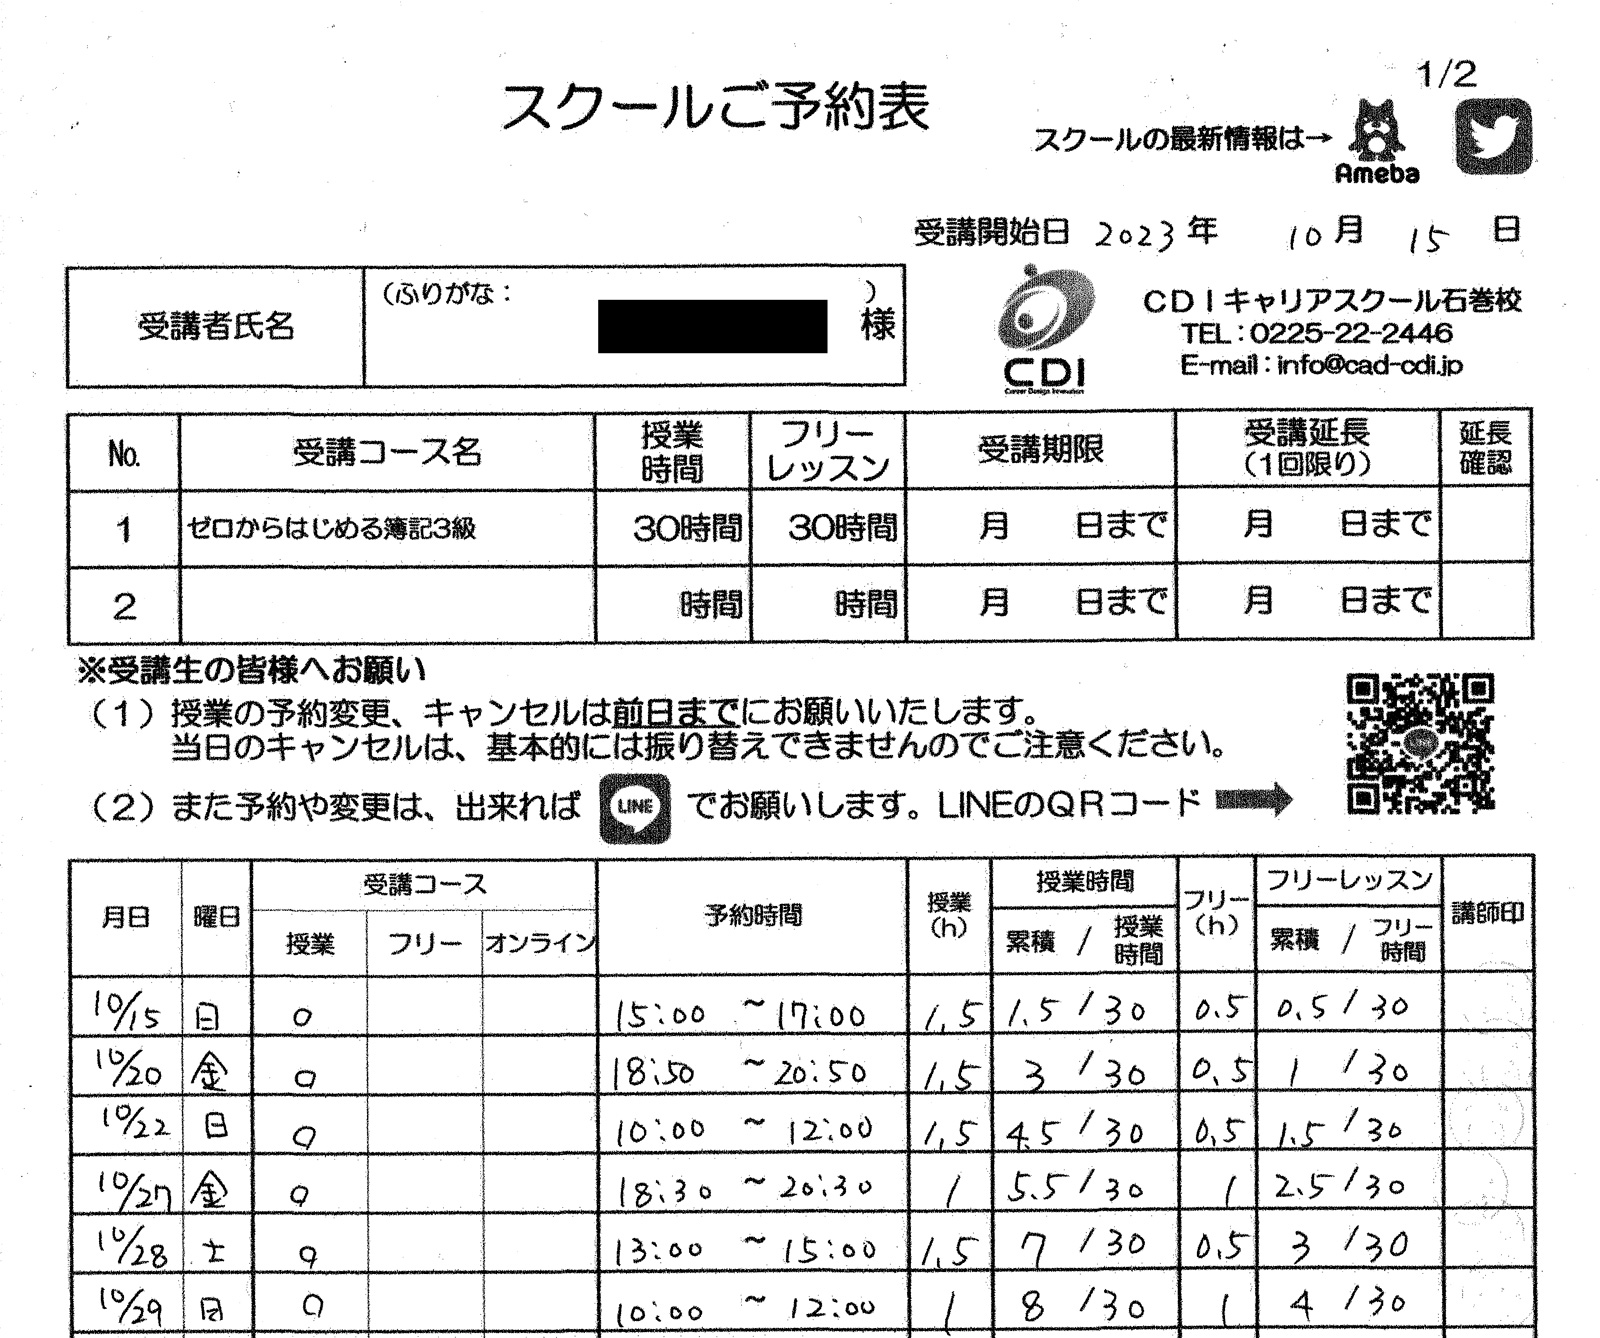 1/2
スクールご予約表
スクールの最新情報は→ Ameba
受講開始日 2023年 10月 15日
受講者氏名 (ふりがな： ) 様
CDI
Career Design Innovation
CDIキャリアスクール石巻校
TEL：0225-22-2446
E-mail：info@cad-cdi.jp
No. 受講コース名 授業時間 フリーレッスン 受講期限 受講延長(1回限り) 延長確認
1 ゼロからはじめる簿記3級 30時間 30時間 月 日まで 月 日まで
2 時間 時間 月 日まで 月 日まで
※受講生の皆様へお願い
(1) 授業の予約変更、キャンセルは前日までにお願いいたします。
当日のキャンセルは、基本的には振り替えできませんのでご注意ください。
(2) また予約や変更は、出来れば LINE でお願いします。LINEのQRコード
月日 曜日 受講コース 予約時間 授業(h) 授業時間 フリー(h) フリーレッスン 講師印
授業 フリー オンライン 累積 / 授業時間 累積 / フリー時間
10/15 日 ○ 15:00 ~ 17:00 1.5 1.5 / 30 0.5 0.5 / 30
10/20 金 ○ 18:50 ~ 20:50 1.5 3 / 30 0.5 1 / 30
10/22 日 ○ 10:00 ~ 12:00 1.5 4.5 / 30 0.5 1.5 / 30
10/27 金 ○ 18:30 ~ 20:30 1 5.5 / 30 1 2.5 / 30
10/28 土 ○ 13:00 ~ 15:00 1.5 7 / 30 0.5 3 / 30
10/29 日 ○ 10:00 ~ 12:00 1 8 / 30 1 4 / 30